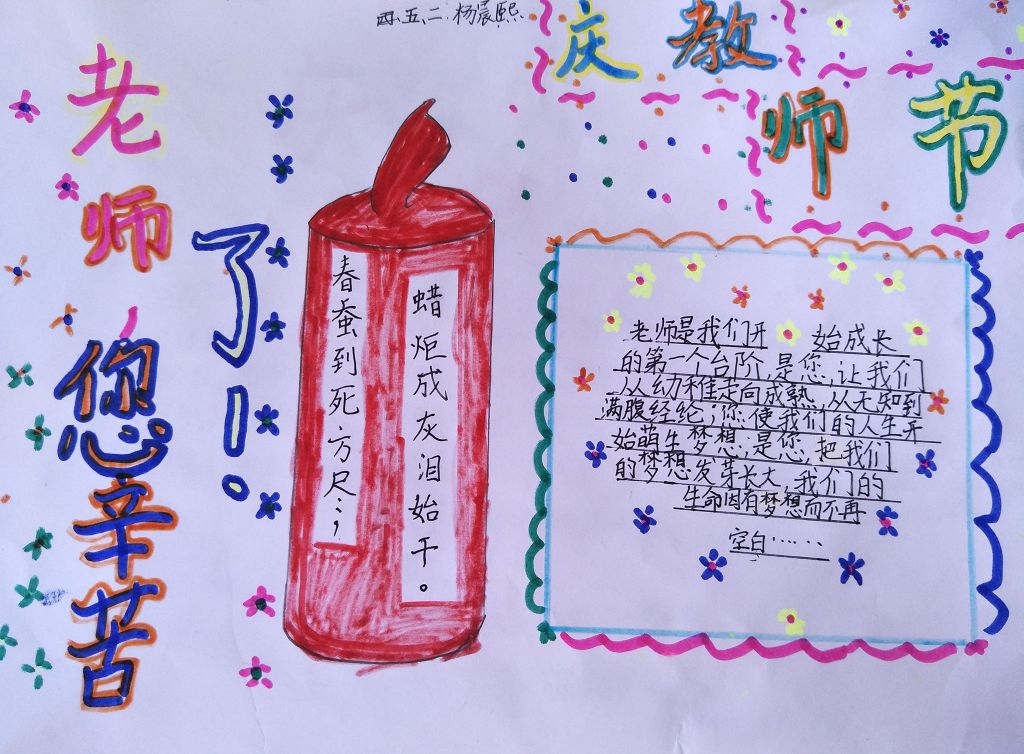 四、五、二 杨晨熙
庆教
师节
老师您辛苦
了!
春蚕到死方尽;
蜡炬成灰泪始干。
老师是我们开 始成长
的第一个台阶,是您,让我们
从幼稚走向成熟,从无知到
满腹经纶;您使我们的人生开
始萌生梦想;是您,把我们
的梦想发芽长大,我们的
生命因有梦想而不再
空白……